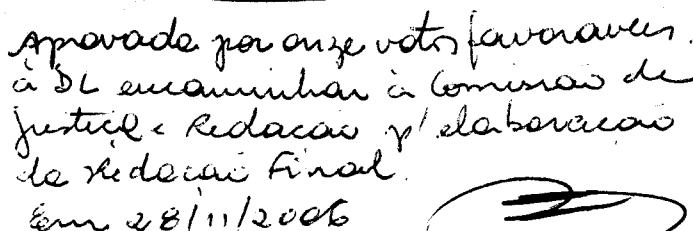 Aprovada por onze votos favoraveis.
à DL encaminhar à Comissão de
Justiça e Redação p/ elaboração
da Redação Final.
Em 28/11/2006